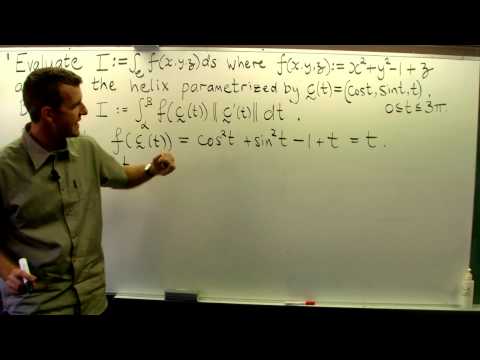 Evaluate I := ∫_C f(x,y,z) ds where f(x,y,z) := x²+y²-1+z
the helix parametrized by c(t) = (cost, sint, t).
I := ∫_α^β f(c(t)) || c'(t) || dt . 0≤t≤3π
f(c(t)) = cos²t + sin²t - 1 + t = t .